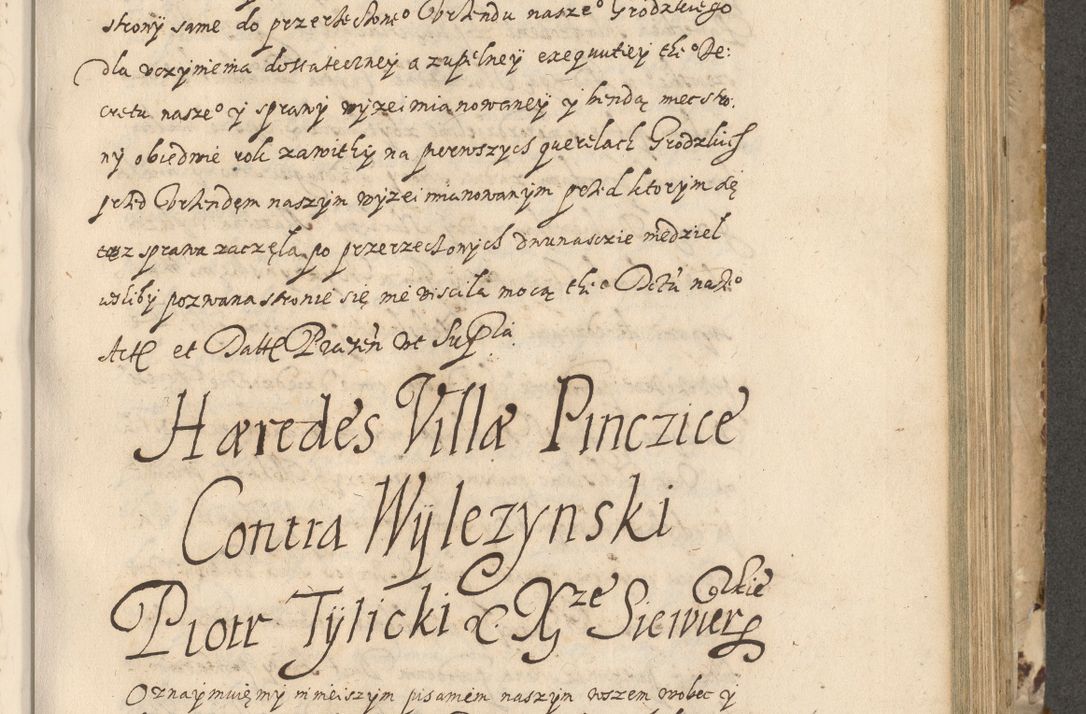 strony same do przerzeczoneo Vrzendu naszeo Grodzkiego
dla vczynienia dostateczney a zupelney exequutiey the° De:
cretu naszeo y sprawy wyzei mianowaney y bendą miec stro:
ny obiedwie rok zawithy na pierwszych querelach Grodzkich
przed Vrzendęm naszym wyzei mianowanym przed ktorym się
tez sprawa zaczęla, po przerzeczonych dwunasczie niedziel
iesliby pozwana stronie się nie viscila mocą the° Dctu nasze°
Acte et Datte Praesen vt Supra
Hæredes Villæ Pinczice
Contra Wÿlezynski
Piotr Tÿlicki &c Xże Siewierskie
Oznajmuięmy ninieiszym pisaniem naszym wszem wobec y